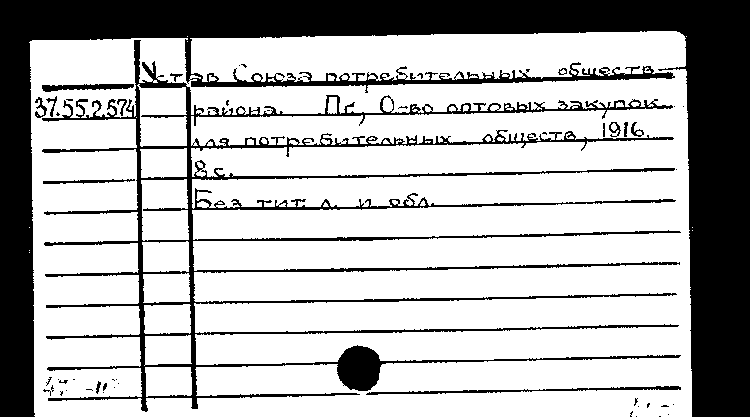 Устав Союза потребительных обществ
37.55.2.574 района. Пг., О-во оптовых закупок
для потребительных обществ, 1916.
8 с.
Без тит. л. и обл.